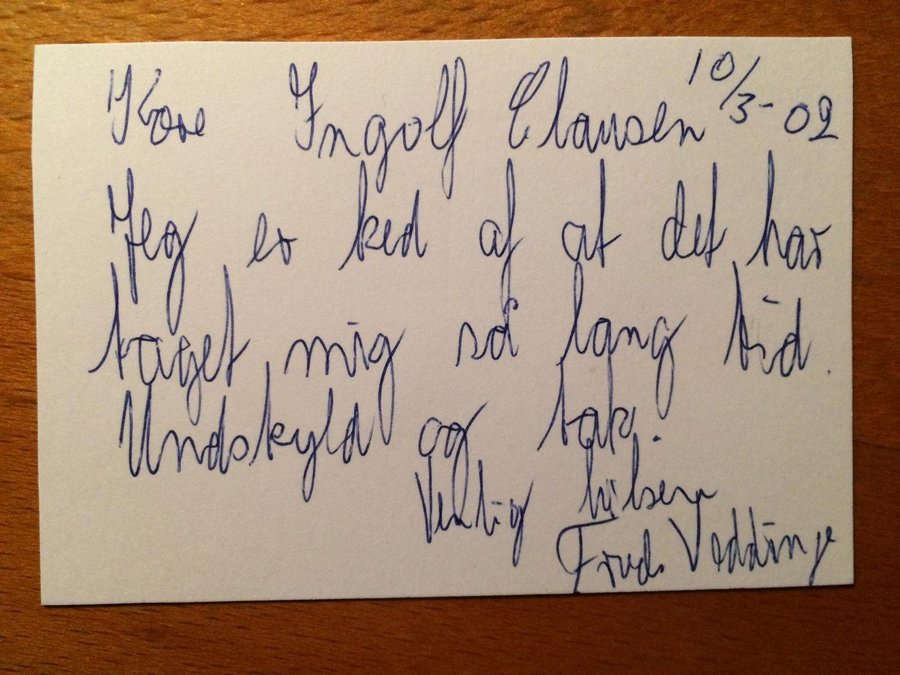 Kære Ingolf Clausen 10/3-02
Jeg er ked af at det har
taget mig så lang tid.
Undskyld og tak.
Venlig hilsen
Vedding